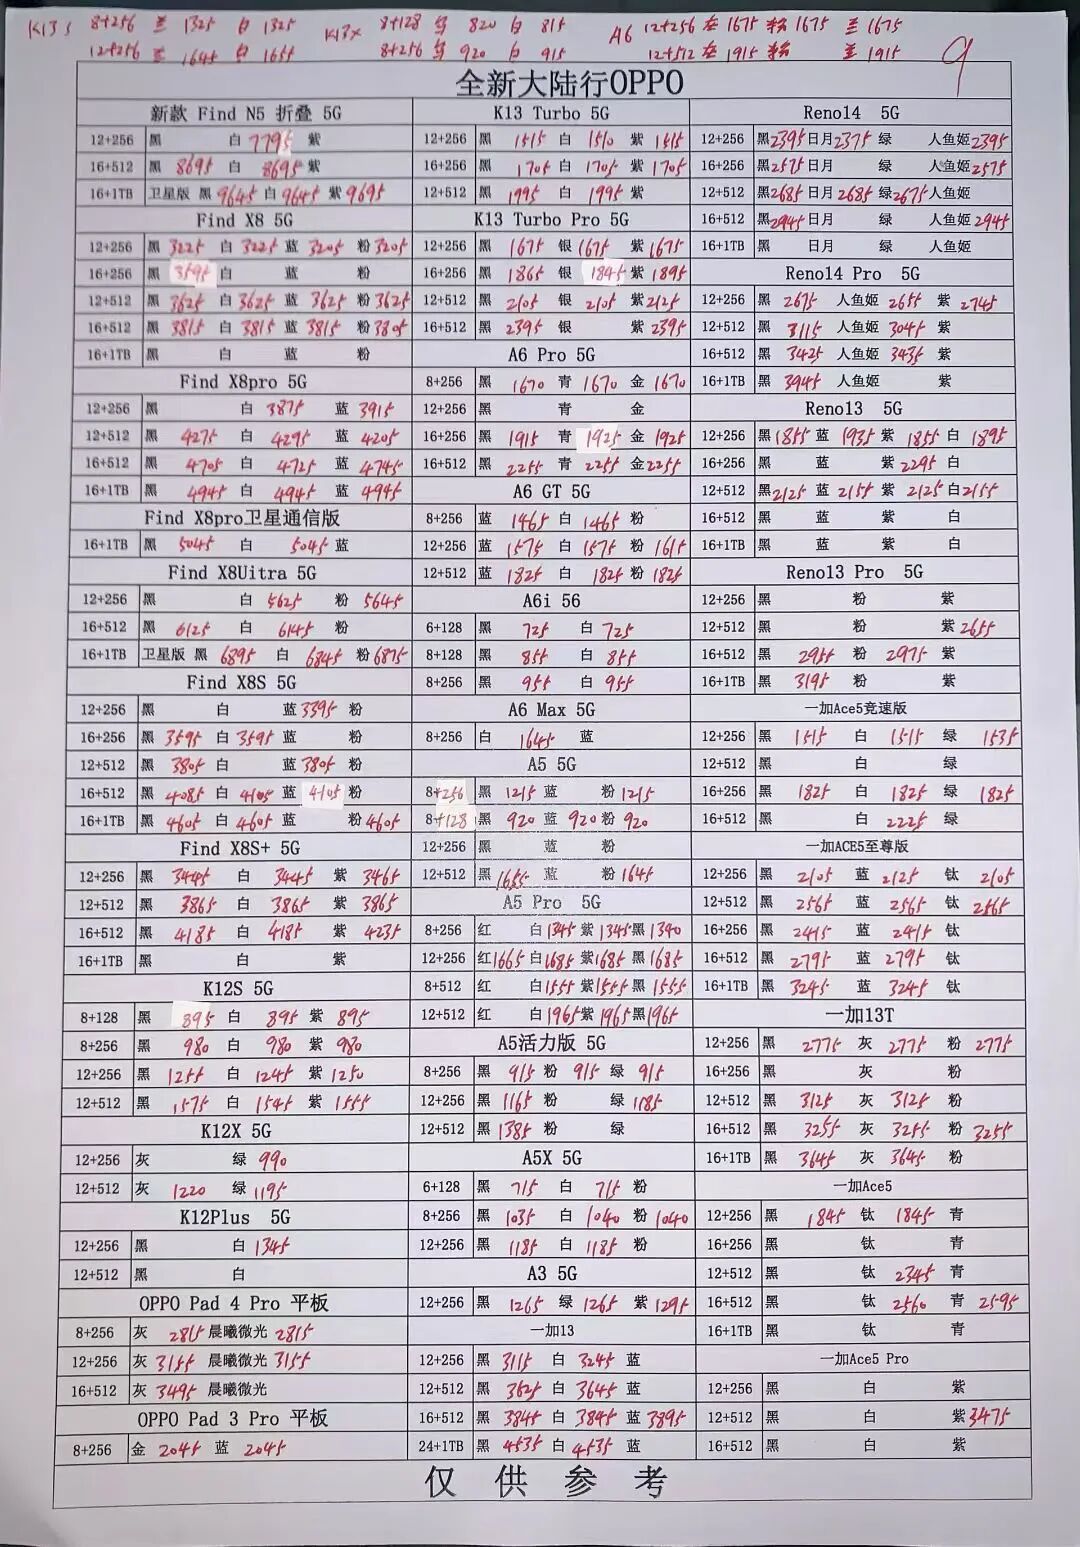 K13s 8+256 兰 1325 白 1325 K13x 8+128 黑 820 白 815 A6 12+256 1675 粉 1675 兰 1675
12+256 兰 1645 白 1655 8+256 黑 920 白 915 12+512 1915 粉 兰 1915
9
全新大陆行OPPO
新款 Find N5 折叠 5G
12+256 黑 白 7795 紫
16+512 黑 8695 白 8695 紫
16+1TB 卫星版 黑 9645 白 9645 紫 9695
Find X8 5G
12+256 黑 3225 白 3225 蓝 3205 粉 3205
16+256 黑 3595 白 蓝 粉
12+512 黑 3625 白 3625 蓝 3625 粉 3625
16+512 黑 3815 白 3815 蓝 3815 粉 3805
16+1TB 黑 白 蓝 粉
Find X8pro 5G
12+256 黑 白 3875 蓝 3915
12+512 黑 4275 白 4295 蓝 4205
16+512 黑 4705 白 4725 蓝 4745
16+1TB 黑 4945 白 4945 蓝 4945
Find X8pro卫星通信版
16+1TB 黑 5045 白 5045 蓝
Find X8Uitra 5G
12+256 黑 白 5625 粉 5645
16+512 黑 6125 白 6145 粉
16+1TB 卫星版 黑 6895 白 6845 粉 6875
Find X8S 5G
12+256 黑 白 蓝 3395 粉
16+256 黑 3595 白 3595 蓝 粉
12+512 黑 3805 白 蓝 3805 粉
16+512 黑 4085 白 4105 蓝 4105 粉
16+1TB 黑 4605 白 4605 蓝 粉 4605
Find X8S+ 5G
12+256 黑 3445 白 3445 紫 3465
12+512 黑 3865 白 3865 紫 3865
16+512 黑 4185 白 4185 紫 4235
16+1TB 黑 白 紫
K12S 5G
8+128 黑 895 白 895 紫 895
8+256 黑 980 白 980 紫 980
12+256 黑 1255 白 1245 紫 1250
12+512 黑 1575 白 1545 紫 1555
K12X 5G
12+256 灰 绿 990
12+512 灰 1220 绿 1195
K12Plus 5G
12+256 黑 白 1345
12+512 黑 白
OPPO Pad 4 Pro 平板
8+256 灰 2815 晨曦微光 2815
12+256 灰 3155 晨曦微光 3155
16+512 灰 3495 晨曦微光
OPPO Pad 3 Pro 平板
8+256 金 2045 蓝 2045
K13 Turbo 5G
12+256 黑 1515 白 1510 紫 1515
16+256 黑 1705 白 1705 紫 1705
12+512 黑 1995 白 1995 紫
K13 Turbo Pro 5G
12+256 黑 1675 银 1675 紫 1675
16+256 黑 1865 银 1845 紫 1895
12+512 黑 2105 银 2105 紫 2125
16+512 黑 2395 银 紫 2395
A6 Pro 5G
8+256 黑 1670 青 1670 金 1670
12+256 黑 青 金
16+256 黑 1915 青 1925 金 1925
16+512 黑 2255 青 2255 金 2255
A6 GT 5G
8+256 蓝 1465 白 1465 粉
12+256 蓝 1575 白 1575 粉 1615
12+512 蓝 1825 白 1825 粉 1825
A6i 56
6+128 黑 725 白 725
8+128 黑 855 白 855
8+256 黑 955 白 955
A6 Max 5G
8+256 白 1645 蓝
A5 5G
8+256 黑 1215 蓝 粉 1215
8+128 黑 920 蓝 920 粉 920
12+256 黑 蓝 粉
12+512 黑 1655 蓝 粉 1645
A5 Pro 5G
8+256 红 白 1345 紫 1345 黑 1340
12+256 红 1665 白 1685 紫 1685 黑 1685
8+512 红 白 1555 紫 1555 黑 1555
12+512 红 白 1965 紫 1965 黑 1965
A5活力版 5G
8+256 黑 915 粉 915 绿 915
12+256 黑 1165 粉 绿 1185
12+512 黑 1385 粉 绿
A5X 5G
6+128 黑 715 白 715 粉
8+256 黑 1035 白 1040 粉 1040
12+256 黑 1185 白 1185 粉
A3 5G
12+256 黑 1265 绿 1265 紫 1295
一加13
12+256 黑 3115 白 3245 蓝
12+512 黑 3625 白 3645 蓝
16+512 黑 3845 白 3845 蓝 3895
24+1TB 黑 4535 白 4535 蓝
Reno14 5G
12+256 黑 2395 日月 2375 绿 人鱼姬 2395
16+256 黑 2575 日月 绿 人鱼姬 2575
12+512 黑 2685 日月 2685 绿 2675 人鱼姬
16+512 黑 2945 日月 绿 人鱼姬 2945
16+1TB 黑 日月 绿 人鱼姬
Reno14 Pro 5G
12+256 黑 2675 人鱼姬 2655 紫 2745
12+512 黑 3115 人鱼姬 3045 紫
16+512 黑 3425 人鱼姬 3435 紫
16+1TB 黑 3945 人鱼姬 紫
Reno13 5G
12+256 黑 1855 蓝 1935 紫 1855 白 1895
16+256 黑 蓝 紫 2295 白
12+512 黑 2125 蓝 2155 紫 2125 白 2155
16+512 黑 蓝 紫 白
16+1TB 黑 蓝 紫 白
Reno13 Pro 5G
12+256 黑 粉 紫
12+512 黑 粉 紫 2655
16+512 黑 2955 粉 2975 紫
16+1TB 黑 3195 粉 紫
一加Ace5竞速版
12+256 黑 1515 白 1515 绿 1535
12+512 黑 白 绿
16+256 黑 1825 白 1825 绿 1825
16+512 黑 白 2225 绿
一加ACE5至尊版
12+256 黑 2105 蓝 2125 钛 2105
12+512 黑 2565 蓝 2565 钛 2565
16+256 黑 2415 蓝 2415 钛
16+512 黑 2795 蓝 2795 钛
16+1TB 黑 3245 蓝 3245 钛
一加13T
12+256 黑 2775 灰 2775 粉 2775
16+256 黑 灰 粉
12+512 黑 3125 灰 3125 粉
16+512 黑 3255 灰 3255 粉 3255
16+1TB 黑 3645 灰 3645 粉
一加Ace5
12+256 黑 1845 钛 1845 青
16+256 黑 钛 青
12+512 黑 钛 2345 青
16+512 黑 钛 2560 青 2595
16+1TB 黑 钛 青
一加Ace5 Pro
12+256 黑 白 紫
12+512 黑 白 紫 3475
16+512 黑 白 紫
仅供参考